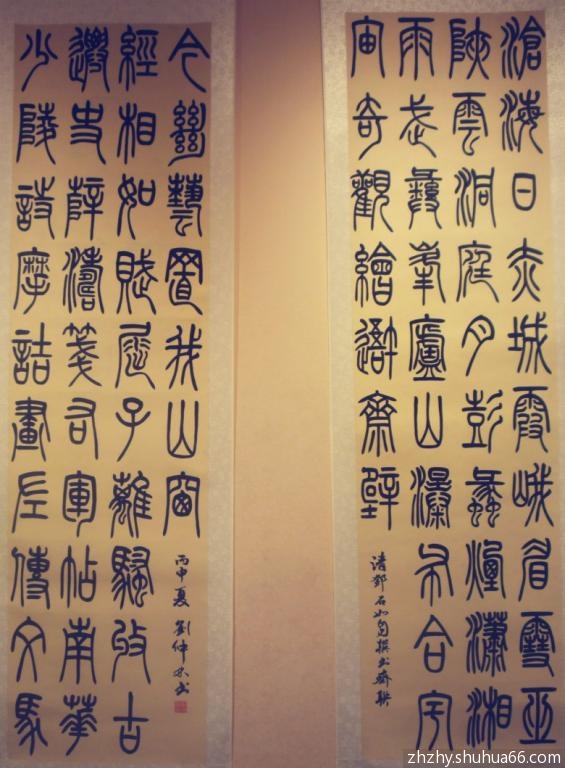 滄海日赤城霞峨眉雪巫
陜雲洞庭月彭蠡煙瀟湘
雨武彝峯廬山瀑布合宇
宙奇觀繪吾齋壁
清鄧石如自撰書齋聯
少陵詩摩詰畫左傳文馬
遷史薛濤箋右軍帖南華
經相如賦屈子離騷收古
今絕藝置我山窗
丙申夏 劉仲書
zhzhy.shuhua66.com